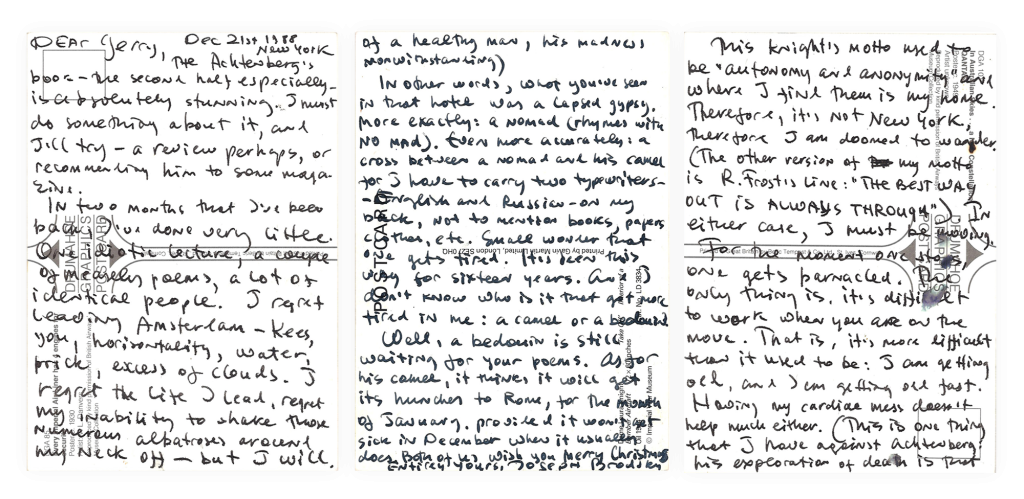 DEAR Gerry, Dec 21st 1988
New York
The Achterberg's
book – the second half especially –
is absolutely stunning. I must
do something about it, and
I'll try – a review perhaps, or
recommenting him to some maga-
zine.
In two months that I've been
back, I've done very little.
One idiotic lecture, a couple
of measly poems, a lot of
identical people. I regret
leaving Amsterdam – Kees,
you, horizontality, water,
brick, excess of clouds. I
regret the life I lead, regret
my inability to shake those
numerous albatroses around
my neck off – but I will.
of a healthy man, his madness
nonwithstanding)
In other words, what you've seen
in that hotel was a lapsed gypsy.
More exactly: a nomad (rhymes with
NO MAD). Even more accurately: a
cross between a nomad and his camel
for I have to carry two typewriters –
– English and Russian – on my
back, not to mention books, papers
etc. Small wonder that
one gets tired. It's been this
way for sixteen years. And I
don't know who is it that gets more
tired in me: a camel or a bedouin
Well, a bedouin is still
waiting for your poems. As for
his camel, it thinks it will get
its hunches to Rome, for the month
of January, provided it won't get
sick in December when it usually
does. Both of us wish you Merry Christmas
Entirely yours, Joseph Brodsky
This knight's motto used to
be "autonomy and anonymity" and
where I find them is my home.
Therefore, it's not New York,
therefore I am doomed to wander.
(The other version of my motto
is R. Frost's line: "THE BEST WAY
OUT IS ALWAYS THROUGH") In
either case, I must be moving.
For the moment one stops
one gets barnacled. The
only thing is, it's difficult
to work when you are on the
move. That is, it's more difficult
than it used to be: I am getting
old, and I am getting old fast.
Having my cardiac mess doesn't
help much either. (This is one thing
that I have against Achterberg:
his exploration of death is that